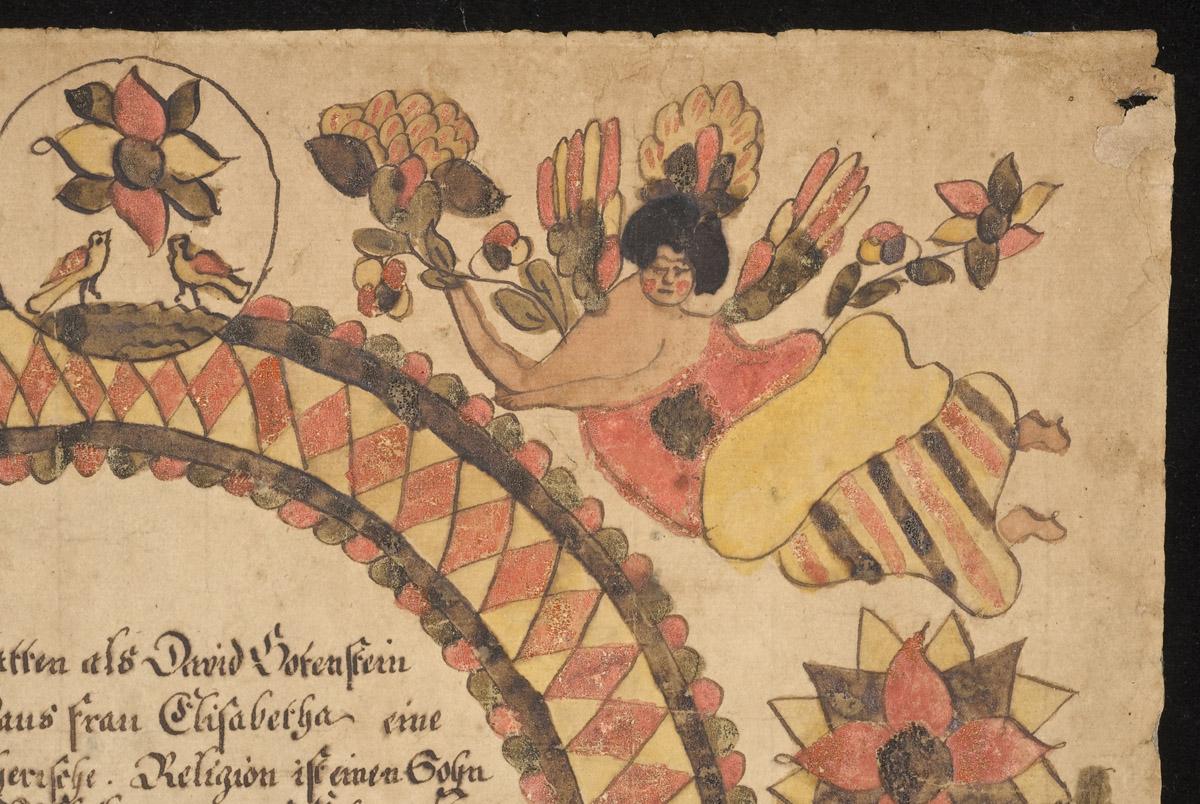 atten als David Gotenstein
aus frau Elisabetha eine
herische. Religion ist einen Sohn